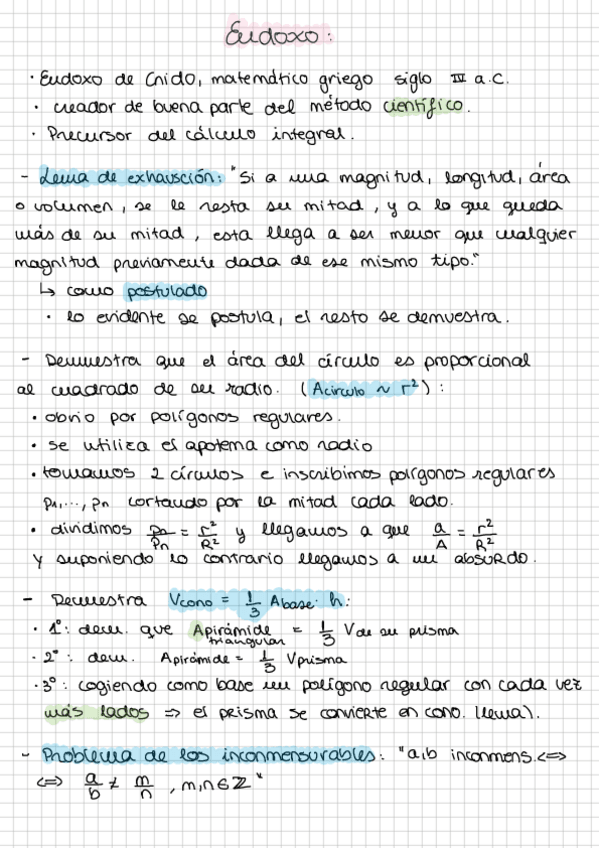 Eudoxo:
· Eudoxo de Cnido, matemático griego siglo IV a.C.
· creador de buena parte del método científico.
· Precursor del cálculo integral.
- Lema de exhausción: "Si a una magnitud, longitud, área
o volumen, se le resta su mitad, y a lo que queda
más de su mitad, esta llega a ser menor que cualquier
magnitud previamente dada de ese mismo tipo."
↳ como postulado
· lo evidente se postula, el resto se demuestra.
- Demuestra que el área del círculo es proporcional
al cuadrado de su radio. (Acírculo ~ r²):
· obvio por polígonos regulares.
· se utiliza el apotema como radio
· tomamos 2 círculos e inscribimos polígonos regulares
p₁,..., pn cortando por la mitad cada lado.
· dividimos pn/Pn = r²/R² y llegamos a que a/A = r²/R²
y suponiendo lo contrario llegamos a un absurdo.
- Demuestra Vcono = 1/3 Abase · h:
· 1º: dem. que Apirámide triangular = 1/3 V de su prisma
· 2º: dem. Apirámide = 1/3 Vprisma
· 3º: cogiendo como base un polígono regular con cada vez
más lados ⇒ el prisma se convierte en cono. (lema).
- Problema de los inconmensurables: "a,b inconmens. <=>
<=> a/b ≠ m/n , m,n ∈ ℤ"